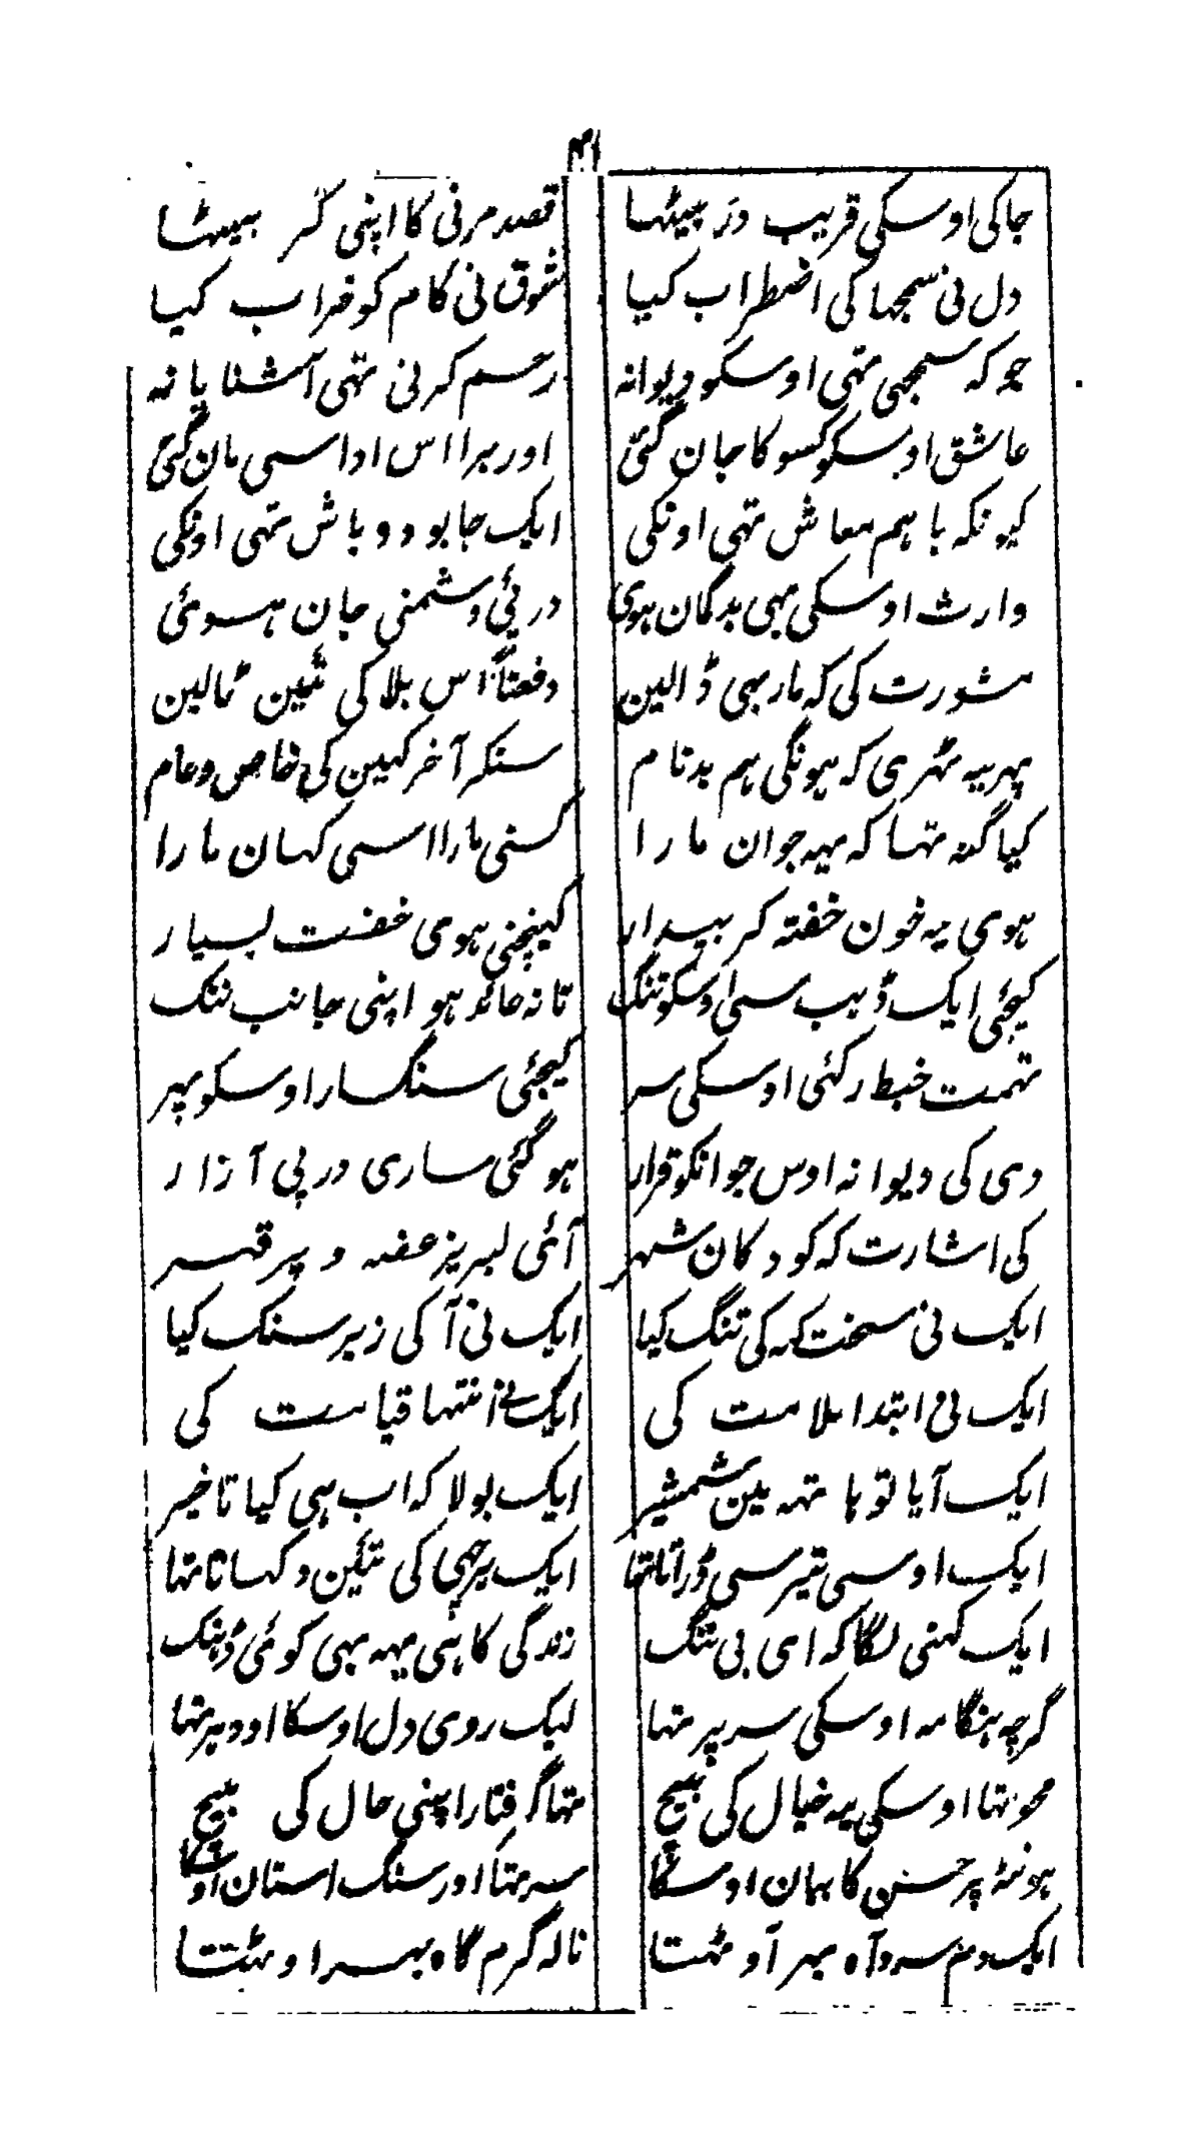 ۴۱
جاکی اوسکی قریب در بیٹھا
قصد مرنی کا اپنی کر بیٹھا
دل نی سمجھا کی اضطراب کیا
شوق نی کام کو خراب کیا
جو کہ سمجھی تہی اوسکو دیوانہ
رحم کرنی تہی آشنایانہ
عاشق اوسکو کسو کا جان گئی
اور برا اس اداسی مان گئی
کیونکہ باہم معاش تہی اونکی
ایک جا بود و باش تہی اونکی
وارث اوسکی بہی بدگمان ہوی
درپئی دشمنی جان ہوئی
مشورت کی کہ مار بہی ڈالین
دفعتاً اس بلا کی تئین ٹالین
پہر یہ ٹہری کہ ہونگی ہم بدنام
سنکر آخر کہین کی خاص و عام
کیا گنہ تہا کہ یہہ جوان مارا
کسنی مارا اسی کہان مارا
ہوی یہ خون خفتہ گر بیدار
کہینچنی ہومی خفت بسیار
کیجئی ایک ڈہب سی اوسکو تنگ
تا نہ عائد ہو اپنی جانب ننگ
تہمت خبط رکئی اوسکی سر
کیجئی سنگسار اوسکو پہر
دی کی دیوانہ اوس جوانکو قرار
ہو گئی ساری درپی آزار
کی اشارت کہ کودکان شہر
آئی لبریز غصہ و پر قہر
ایک نی سخت کہہ کی تنگ کیا
ایک نی آ کی زیر سنگ کیا
ایک نی ابتدا ملامت کی
ایک نے انتہا قیامت کی
ایک آیا تو ہاتہہ مین شمشیر
ایک بولا کہ اب ہی کیا تاخیر
ایک اوسی تیر سی ڈراتا تہا
ایک برچہی کی تئین دکہاتا تہا
ایک کہنی لگا کہ ای بی ننگ
زندگی کا ہی یہہ بہی کوئی ڈہنگ
گرچہ ہنگامہ اوسکی سر پر تہا
لیک روی دل اوسکا اودہر تہا
محو تہا اوسکی یہ خیال کی بیچ
تہا گرفتار اپنی حال کی بیچ
ہونٹہ پر حسن کا بیان اوسکا
سر تہا اور سنگ استان اوسکا
ایک دم سرد آہ بہر آوٹہتا
نالہ گرم گاہ بہر اوٹہتا